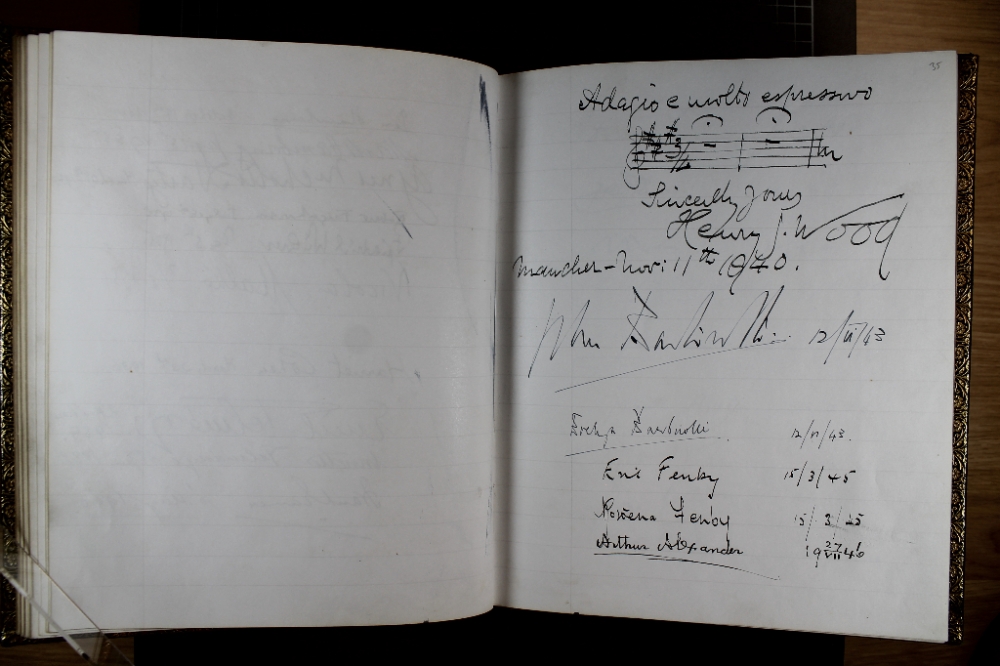 35
Adagio e molto espressivo
Sincerely Yours
Henry J. Wood
Manchester - Nov: 11th 1940.
John Barbirolli 12/VI/43
Evelyn Barbirolli 12/VI/43.
Eric Fenby 15/3/45
Rowena Fenby 15/3/45
Arthur Alexander 27 VII 1946